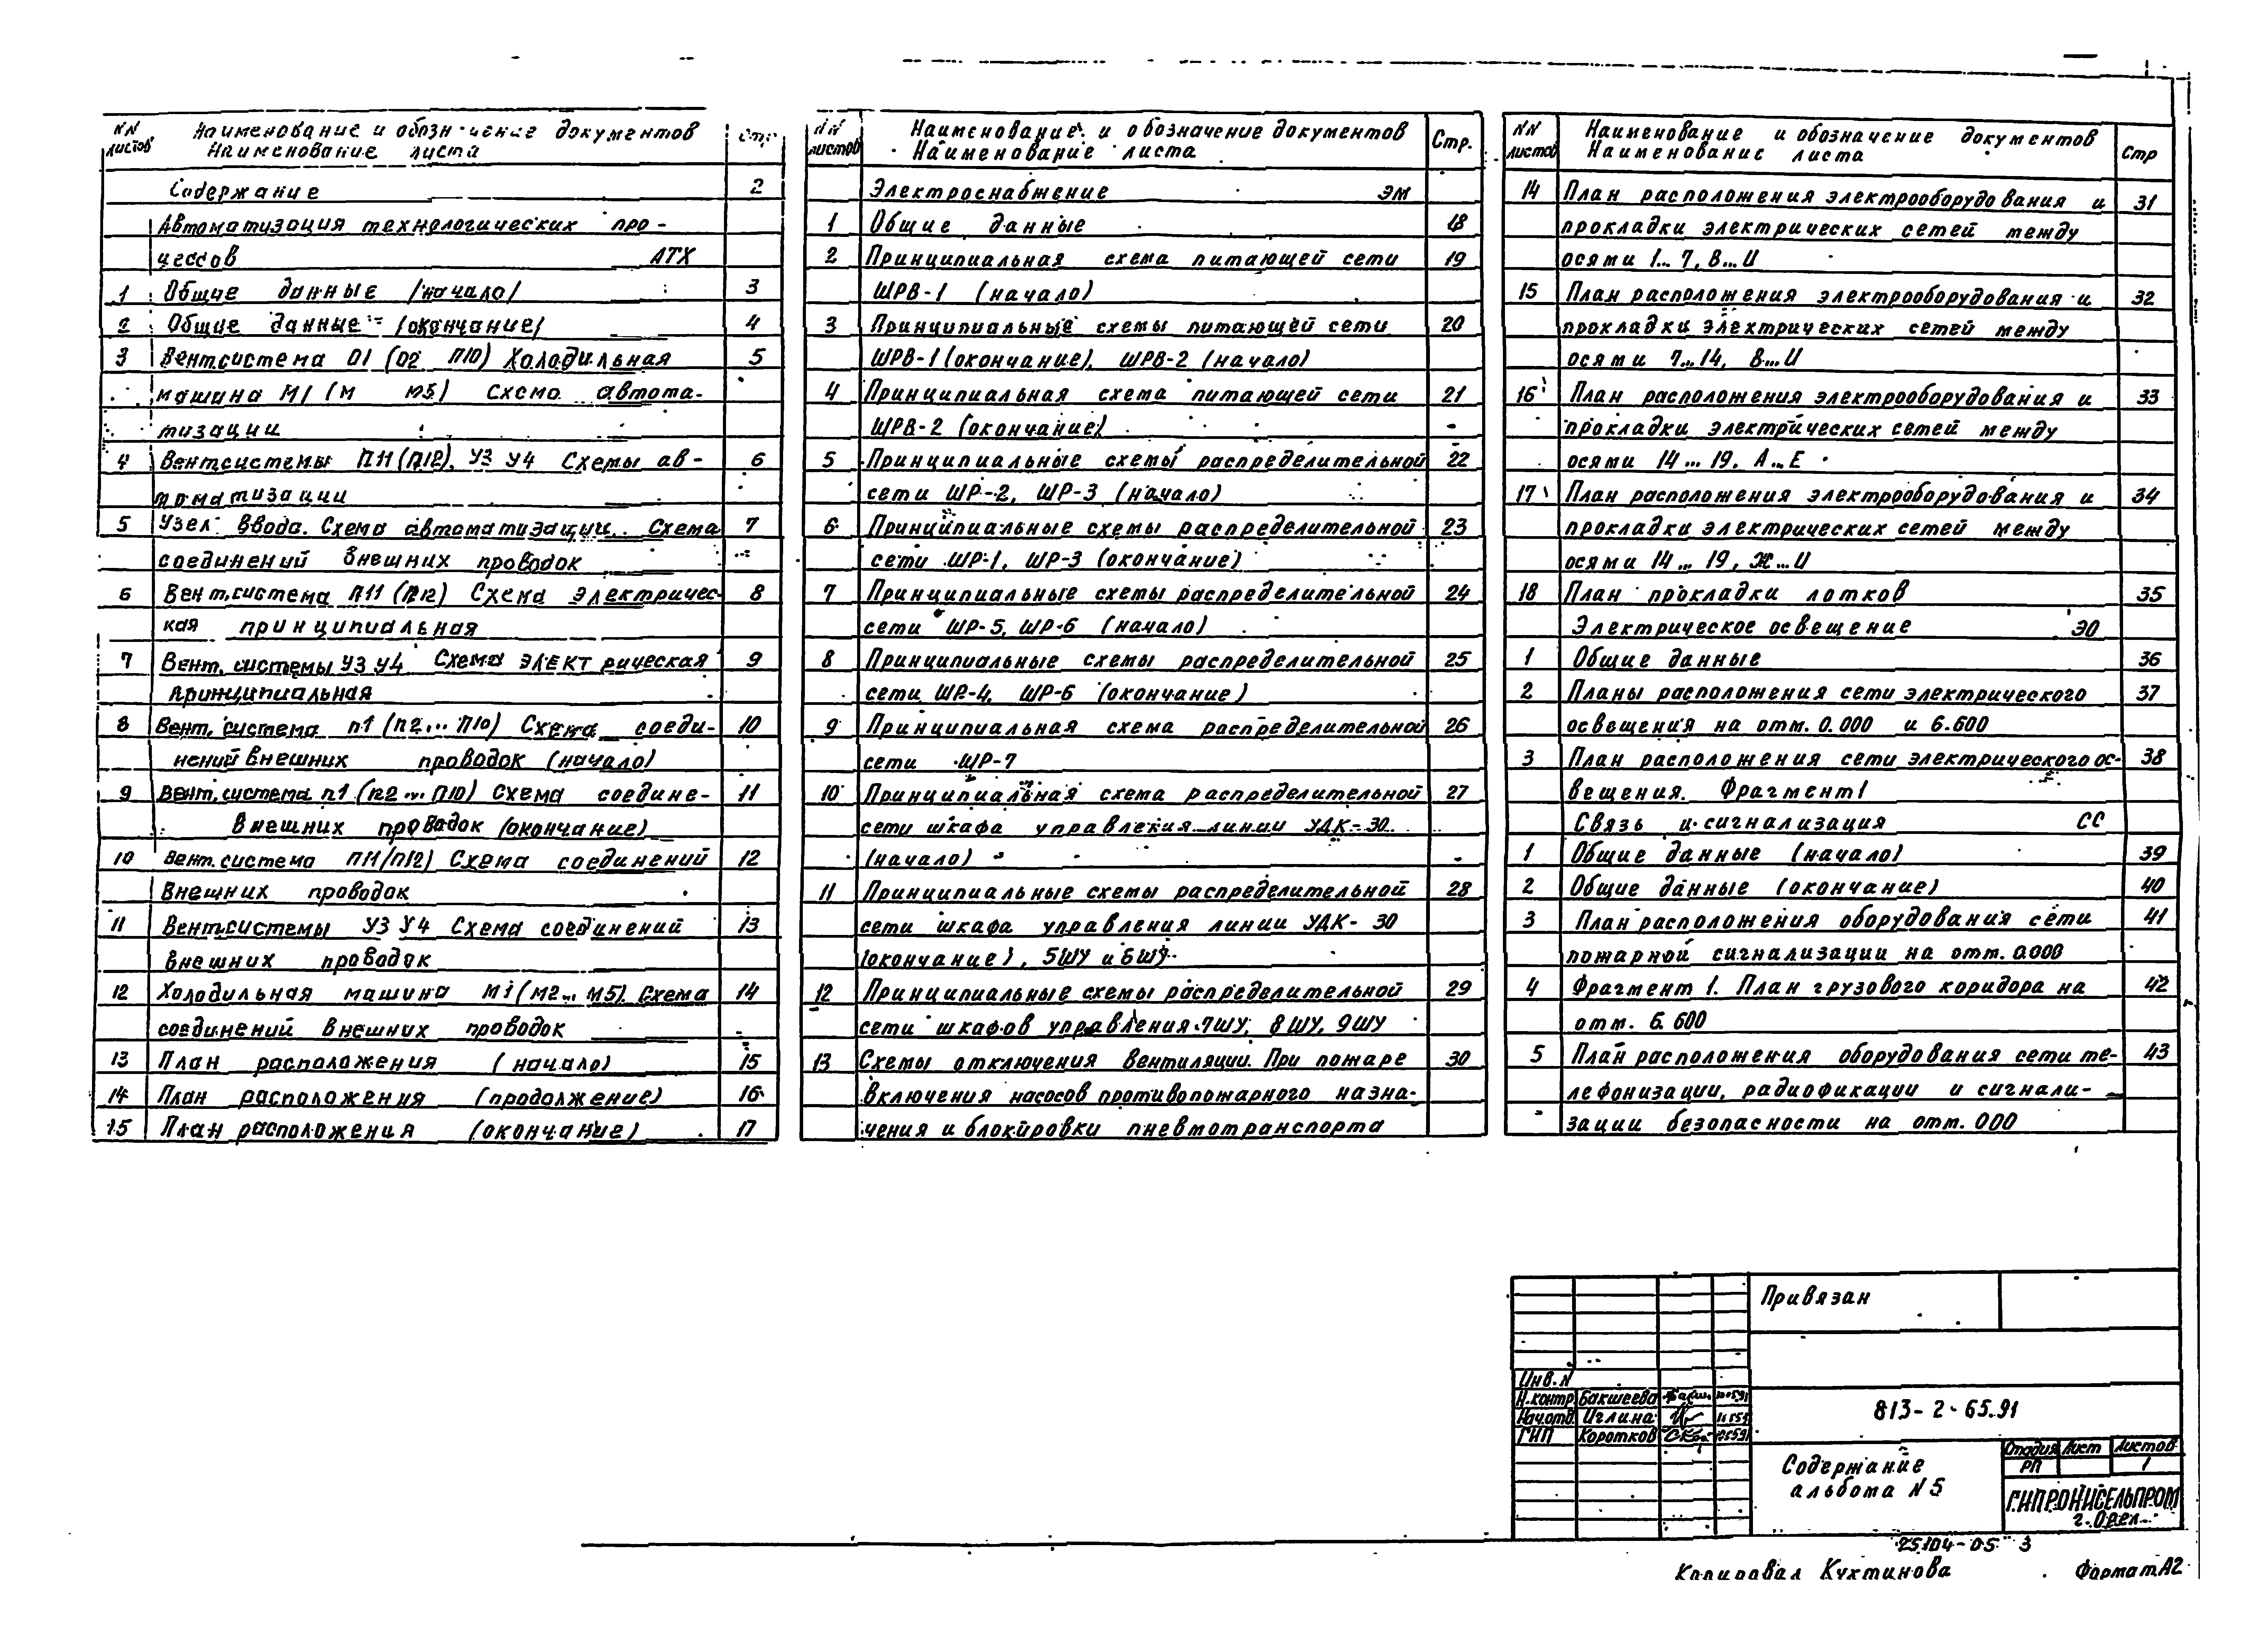 NN листов Наименование и обозначение документов Стр.
Наименование листа
Содержание 2
Автоматизация технологических про-
цессов АТХ
1 Общие данные /начало/ 3
2 Общие данные /окончание/ 4
3 Вентсистема 01 (02 П10) Холодильная 5
машина М1 (М М5) Схема автома-
тизации
4 Вентсистемы П11 (П12), У3 У4 Схемы ав- 6
томатизации
5 Узел ввода. Схема автоматизации. Схема 7
соединений внешних проводок
6 Вент.система П11 (П12) Схема электричес- 8
кая принципиальная
7 Вент.системы У3 У4 Схема электрическая 9
принципиальная
8 Вент.система п1 (П2... П10) Схема соеди- 10
нений внешних проводок (начало)
9 Вент.система п1 (п2... П10) Схема соедине- 11
внешних проводок (окончание)
10 Вент.система П11/П12) Схема соединений 12
внешних проводок
11 Вентсистемы У3 У4 Схема соединений 13
внешних проводок
12 Холодильная машина М1 (М2... М5). Схема 14
соединений внешних проводок
13 План расположения (начало) 15
14 План расположения (продолжение) 16
15 План расположения (окончание) 17
NN листов Наименование и обозначение документов Стр.
Наименование листа
Электроснабжение ЭМ
1 Общие данные 18
2 Принципиальная схема питающей сети 19
ШРВ-1 (начало)
3 Принципиальные схемы питающей сети 20
ШРВ-1 (окончание), ШРВ-2 (начало)
4 Принципиальная схема питающей сети 21
ШРВ-2 (окончание)
5 Принципиальные схемы распределительной 22
сети ШР-2, ШР-3 (начало)
6 Принципиальные схемы распределительной 23
сети ШР-1, ШР-3 (окончание)
7 Принципиальные схемы распределительной 24
сети ШР-5, ШР-6 (начало)
8 Принципиальные схемы распределительной 25
сети ШР-4, ШР-6 (окончание)
9 Принципиальная схема распределительной 26
сети ШР-7
10 Принципиальная схема распределительной 27
сети шкафа управления линии УДК-30
(начало)
11 Принципиальные схемы распределительной 28
сети шкафа управления линии УДК-30
(окончание), 5ШУ и 6ШУ
12 Принципиальные схемы распределительной 29
сети шкафов управления 7ШУ, 8ШУ, 9ШУ
13 Схемы отключения вентиляции. При пожаре 30
включения насосов противопожарного назна-
чения и блокировки пневмотранспорта
NN листов Наименование и обозначение документов Стр
Наименование листа
14 План расположения электрооборудования и 31
прокладки электрических сетей между
осями 1... 7, В...И
15 План расположения электрооборудования и 32
прокладки электрических сетей между
осями 7...14, В...И
16 План расположения электрооборудования и 33
прокладки электрических сетей между
осями 14...19, А...Е
17 План расположения электрооборудования и 34
прокладки электрических сетей между
осями 14...19, Ж...И
18 План прокладки лотков 35
Электрическое освещение ЭО
1 Общие данные 36
2 Планы расположения сети электрического 37
освещения на отм. 0.000 и 6.600
3 План расположения сети электрического ос- 38
вещения. Фрагмент 1
Связь и сигнализация СС
1 Общие данные (начало) 39
2 Общие данные (окончание) 40
3 План расположения оборудования сети 41
пожарной сигнализации на отм. 0.000
4 Фрагмент 1. План грузового коридора на 42
отм. 6.600
5 План расположения оборудования сети те- 43
лефонизации, радиофикации и сигнали-
зации безопасности на отм. 000
Привязан
Инв.N
Н.контр Бакшеева
Нач.отд. Иглина
ГИП Коротков
813-2-65.91
Содержание
альбома N5
Стадия Лист Листов
РП 1
ГИПРОНИСЕЛЬПРОМ
г. Орел
25104-05 3
Копировал Кухтинова Формат А2